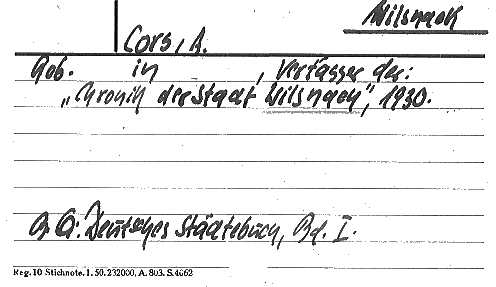 Wilsnack
Cors, A.
Geb. in , Verfasser der:
„Chronik der Stadt Wilsnack", 1930.
Q: Deutsches Städtebuch, Bd. I.
Reg. 10 Stichnote. I. 50. 232000, A. 803. S. 4662